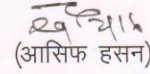 (आसिफ हसन)